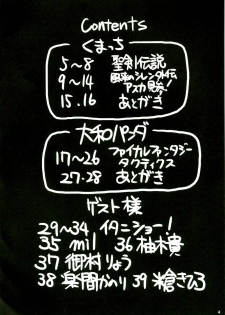 Contents
くまっち
5~8 聖剣伝説
9~14 風来のシレン外伝
アスカ見参!
15.16 あとがき
大和パンダ
17~26 ファイナルファンタジー
タクティクス
27・28 あとがき
ゲスト様
29~34 イタニショー!
35 mil 36 柚木貴
37 御村りょう
38 かのり 39 きひろ
4